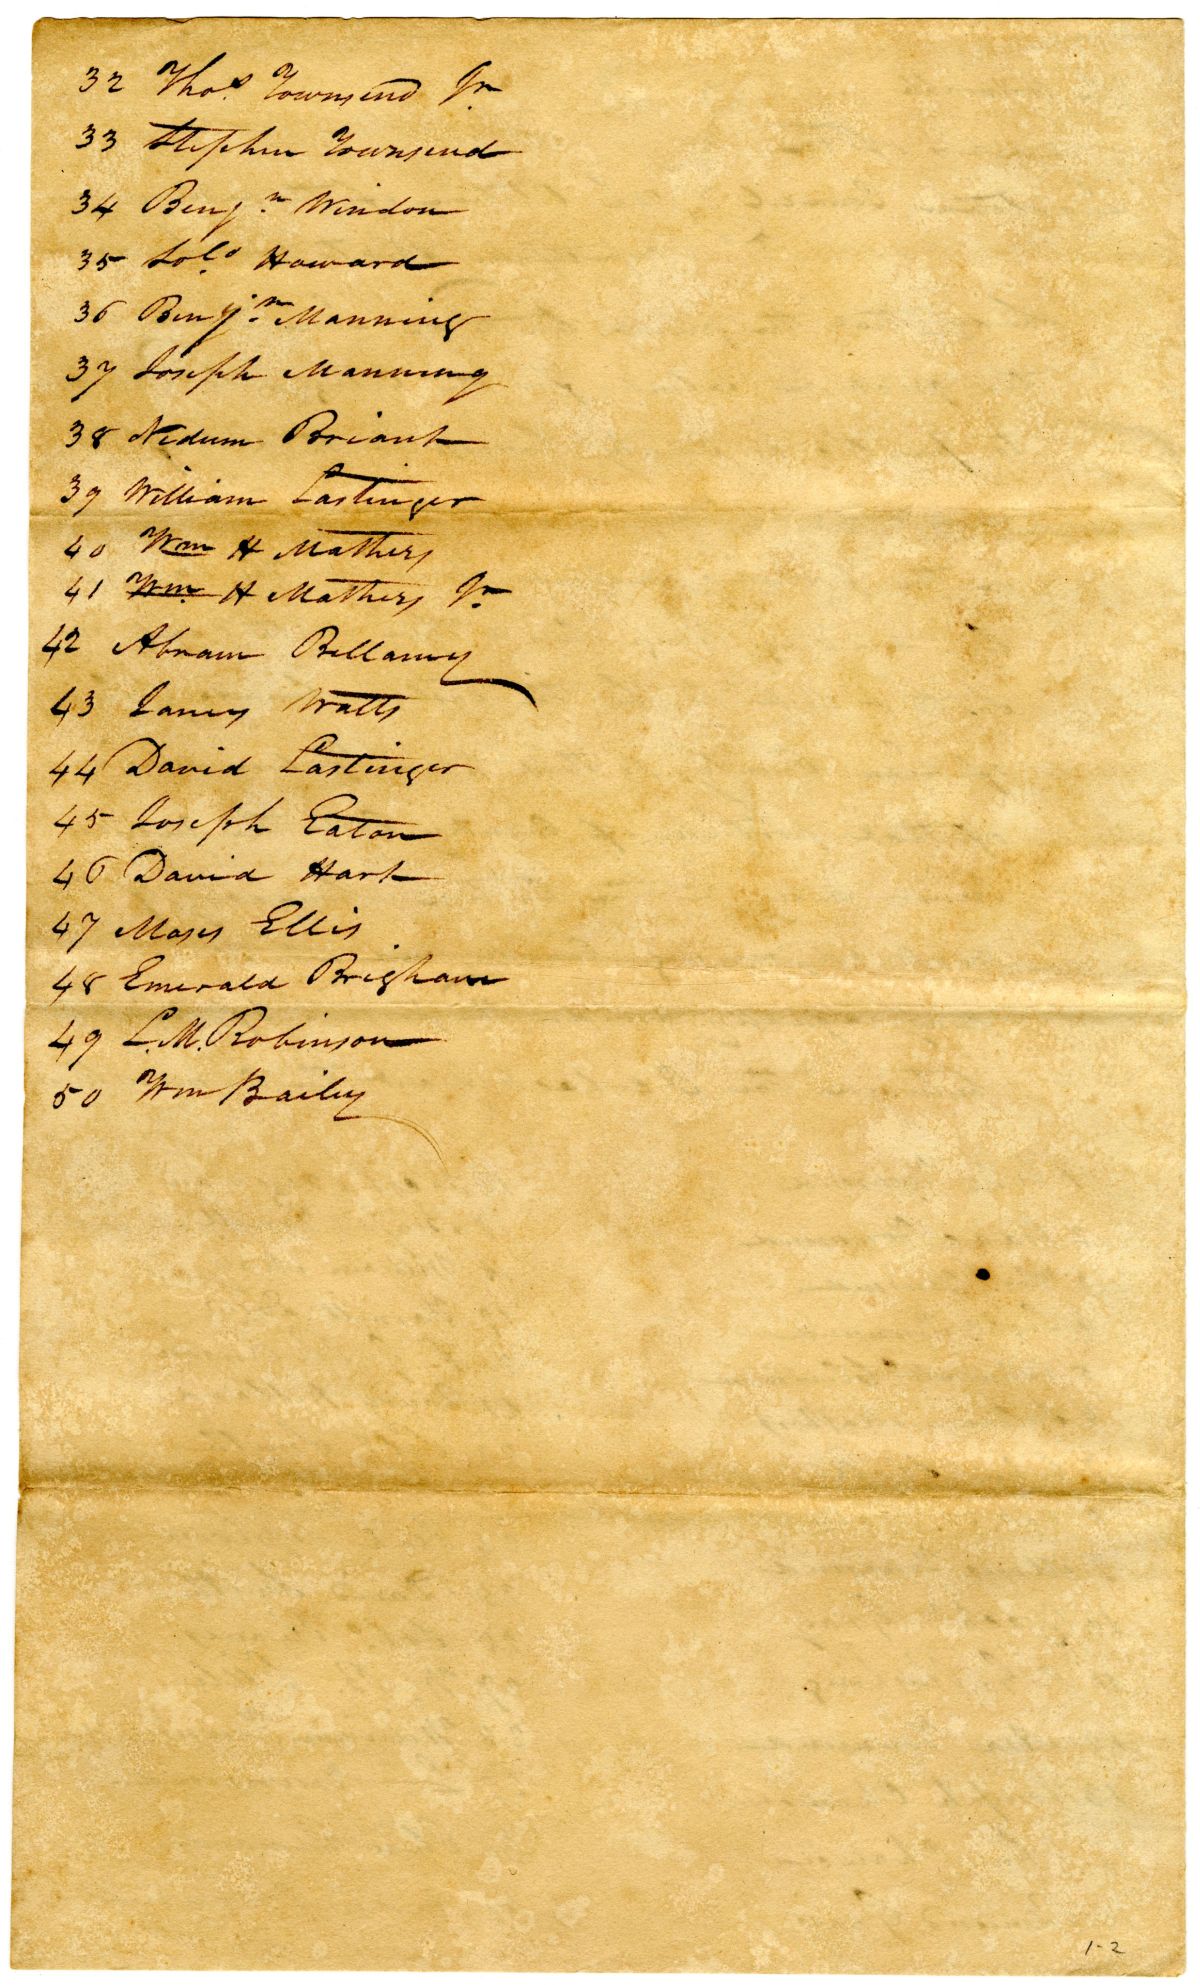 32 Thos. Townsend Jr
33 Stephen Townsend
34 Benjn. Windon
35 Solo. Howard
36 Benjn. Manning
37 Joseph Manning
38 Nedum Briant
39 William Lastinger
40 Wm H Mathers
41 Wm. H Mathers Jr
42 Abram Bellamy
43 James Watts
44 David Lastinger
45 Joseph Eaton
46 David Hart
47 Moses Ellis
48 Emerald Brigham
49 L. M. Robinson
50 Wm Bailey
1-2